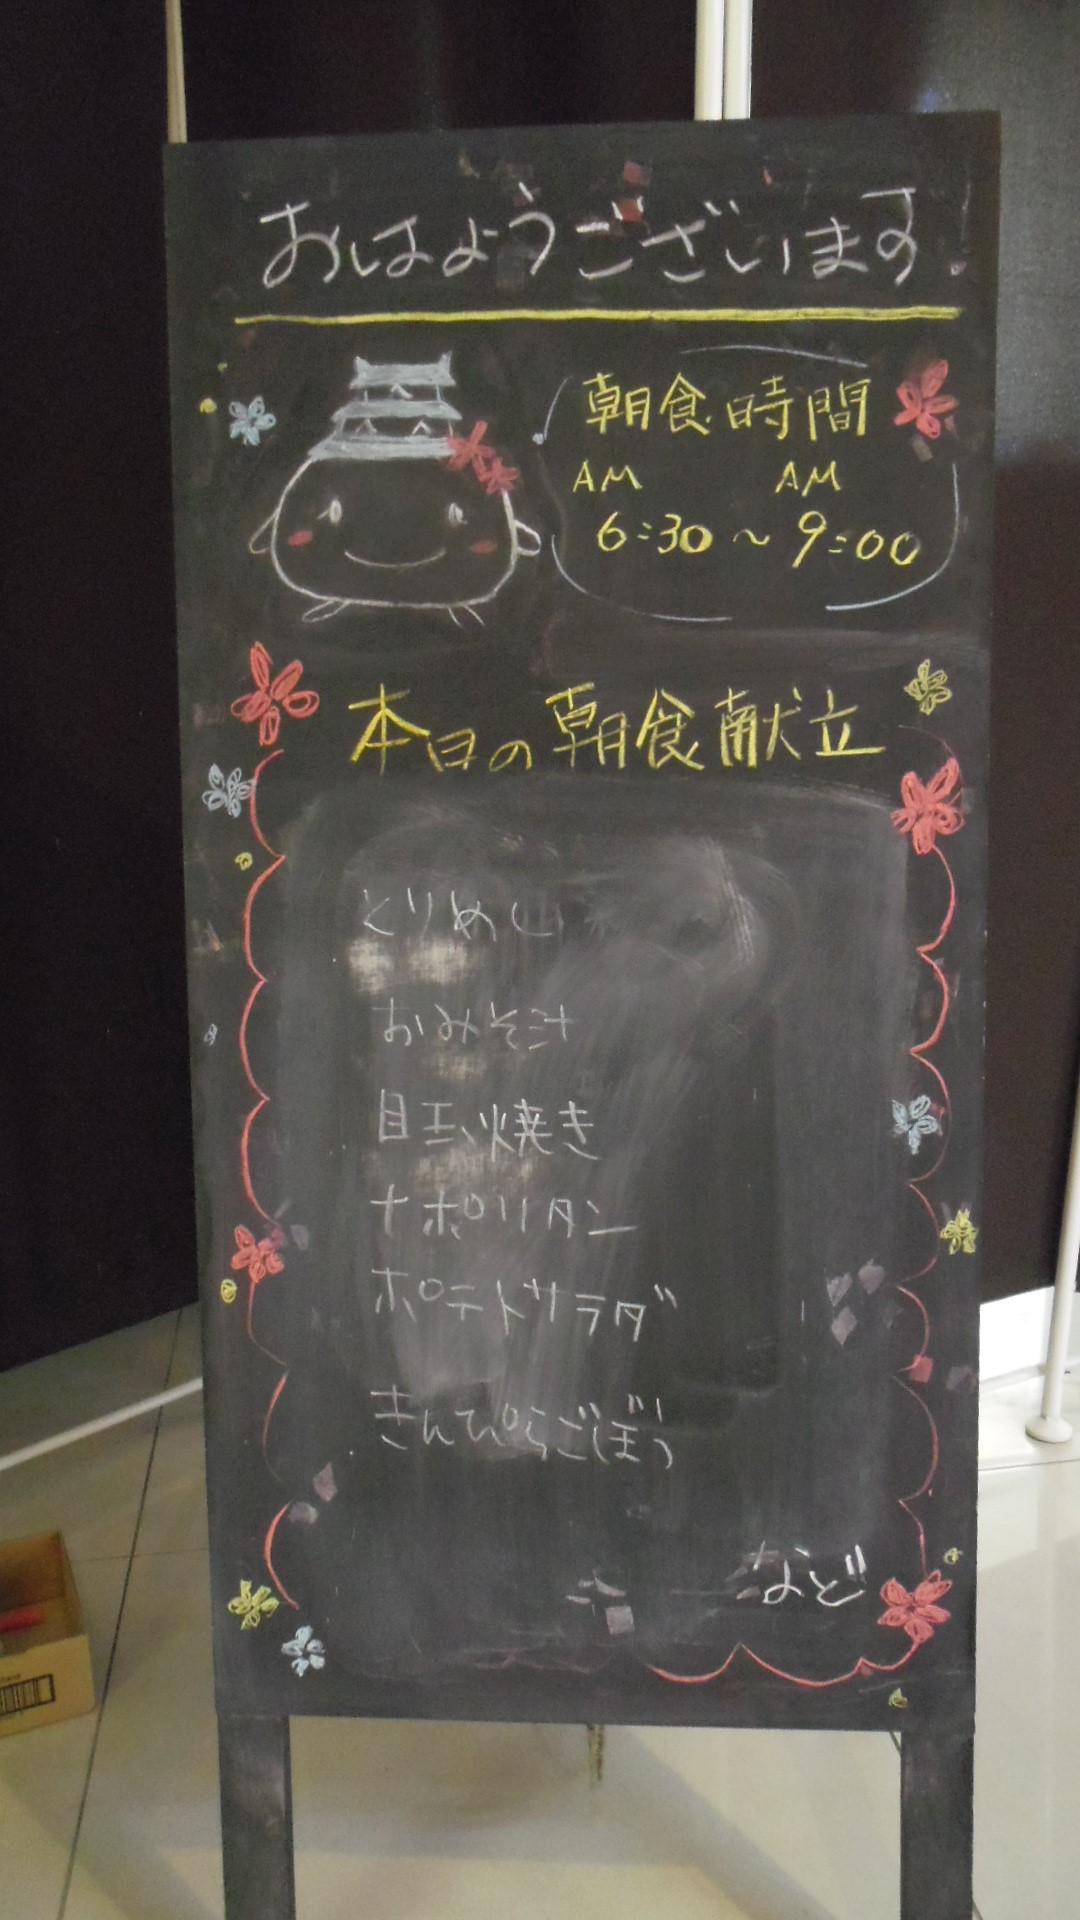 おはようございます!
朝食時間
AM AM
6:30〜9:00
本日の朝食献立
とりめし
おみそ汁
目玉焼き
ナポリタン
ポテトサラダ
きんぴらごぼう
など